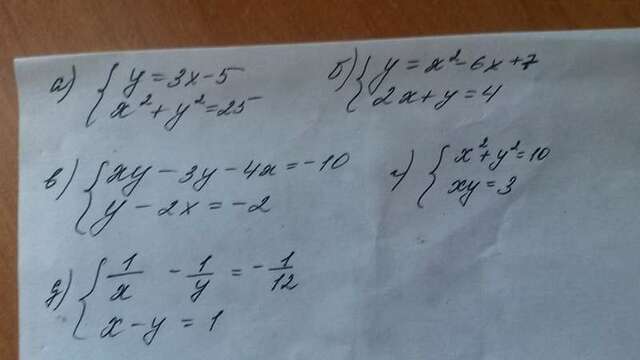 а) { y = 3x - 5
x² + y² = 25
б) { y = x² - 6x + 7
2x + y = 4
в) { xy - 3y - 4x = -10
y - 2x = -2
г) { x² + y² = 10
xy = 3
д) { 1/x - 1/y = - 1/12
x - y = 1